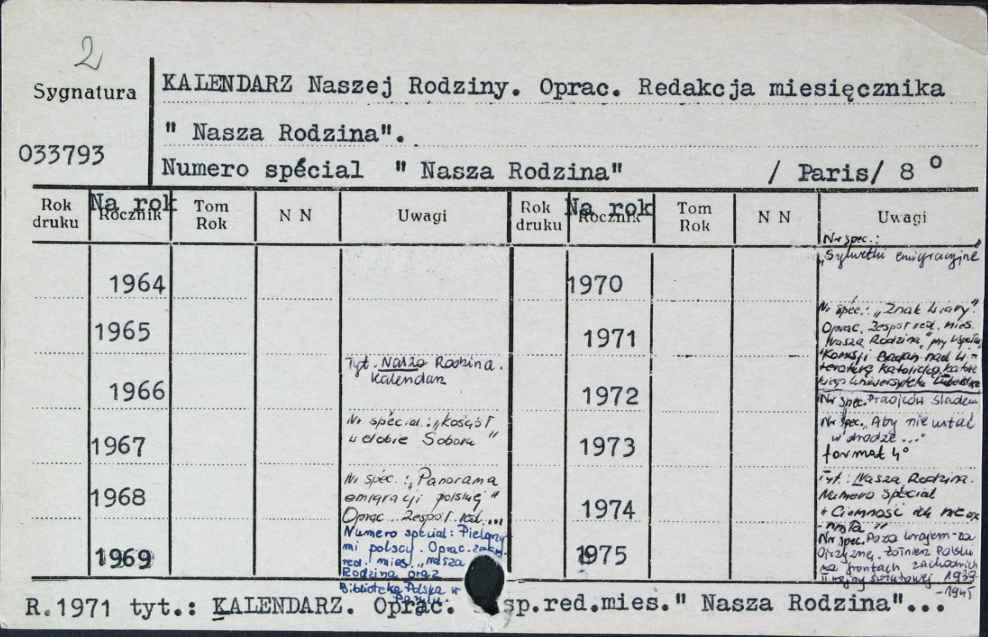 2
Sygnatura
KALENDARZ Naszej Rodziny. Oprac. Redakcja miesięcznika
" Nasza Rodzina".
033793
Numero spécial " Nasza Rodzina" / Paris/ 8°
Rok druku
Na rok
Rocznik
Tom Rok
N N
Uwagi
Rok druku
Na rok
Rocznik
Tom Rok
N N
Uwagi
1964
1965
1966
Tyt. Nasza Rodzina.
Kalendarz
1967
Nr spécial.: "Kościół
w dobie Soboru"
1968
Nr spéc.: "Panorama
emigracji polskiej"
Oprac. Zespół red....
1969
Numero spécial: Pielgrzy
mi polscy. Oprac.
red. mies. "Nasza
Rodzina oraz
Biblioteka Polska w
Paryżu.
1970
Nr spec.:
"Sylwetki emigracyjne"
1971
Nr spéc.: "Znak wiary".
Oprac. Zespół red. mies.
"Nasza Rodzina", przy współpr.
Komisji Badań nad Li-
teraturą Katolicką Katol
kiego Uniwersytetu Lubelskiego
1972
Nr spec. Praojców śladem
1973
Nr spec. "Aby nie ustać
w drodze..."
format 4°
1974
Tyt.: Nasza Rodzina.
Numero spécial
+ Ciemność jej nie og-
1975
Nr spec. Poza krajem-za
Ojczyznę. Żołnierz Polski
na frontach zachodnich
II wojny światowej 1939
-1945
R.1971 tyt.: KALENDARZ. Oprac. sp.red.mies." Nasza Rodzina"...